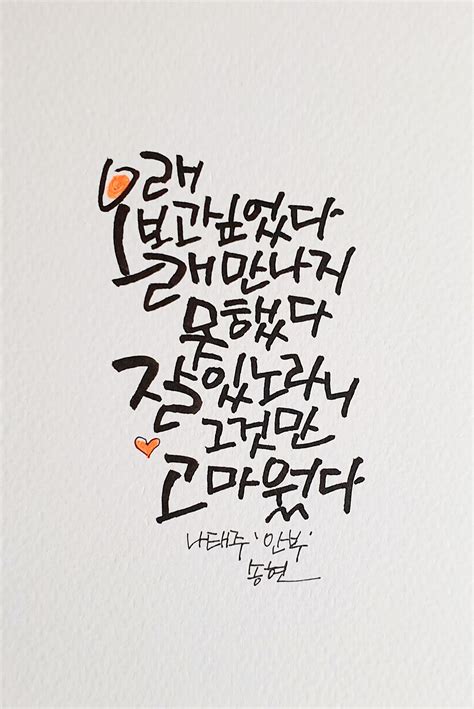 오래
보고싶었다
오래만나지
못했다
잘있노라니
그것만
고마웠다
나태주 '안부'
송현